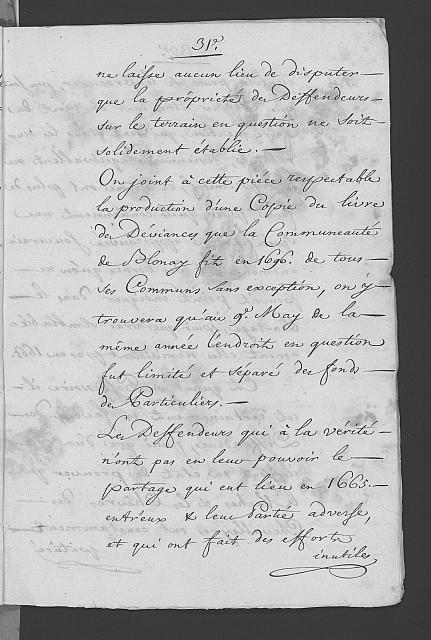 31.e
ne laisse aucun lieu de disputer
que la propriété des Deffendeurs
sur le terrain en question ne soit
solidement établie. —
On joint à cette piéce respectable
la production d'une Copie du livre
de Déviances que la Communeauté
de Blonay fit en 1696. de tous
ses Communs sans exception, on y
trouvera qu'au 9.e May de la
même année l'endroit en question
fut limité et separé des fonds
de Particuliers. —
Les Deffendeurs qui à la vérité
n'ont pas en leur pouvoir le
partage qui eut lieu en 1665. —
entr'eux & leur Partie adverse,
et qui ont fait des efforts
inutiles